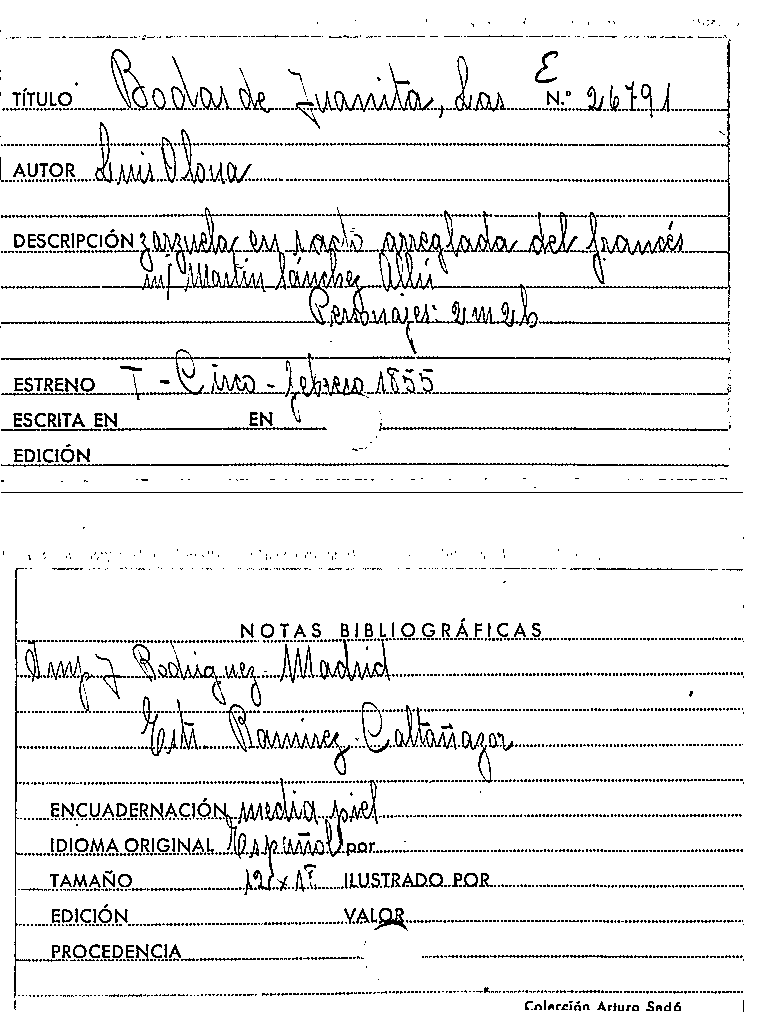 E
TÍTULO Bodas de Juanita, Las N.º 26791
AUTOR Luis Olona
DESCRIPCIÓN zarzuela en 1 acto arreglada del francés
m/ Martin Sánchez Allú
Personajes: 2m 2h
ESTRENO T - Circo - febrero 1855
ESCRITA EN EN
EDICIÓN
NOTAS BIBLIOGRÁFICAS
Imp J Rodriguez - Madrid
Estr. Ramirez - Caltañazor
ENCUADERNACIÓN media piel
IDIOMA ORIGINAL Español por
TAMAÑO ILUSTRADO POR
EDICIÓN VALOR
PROCEDENCIA
Colección Arturo Sedó